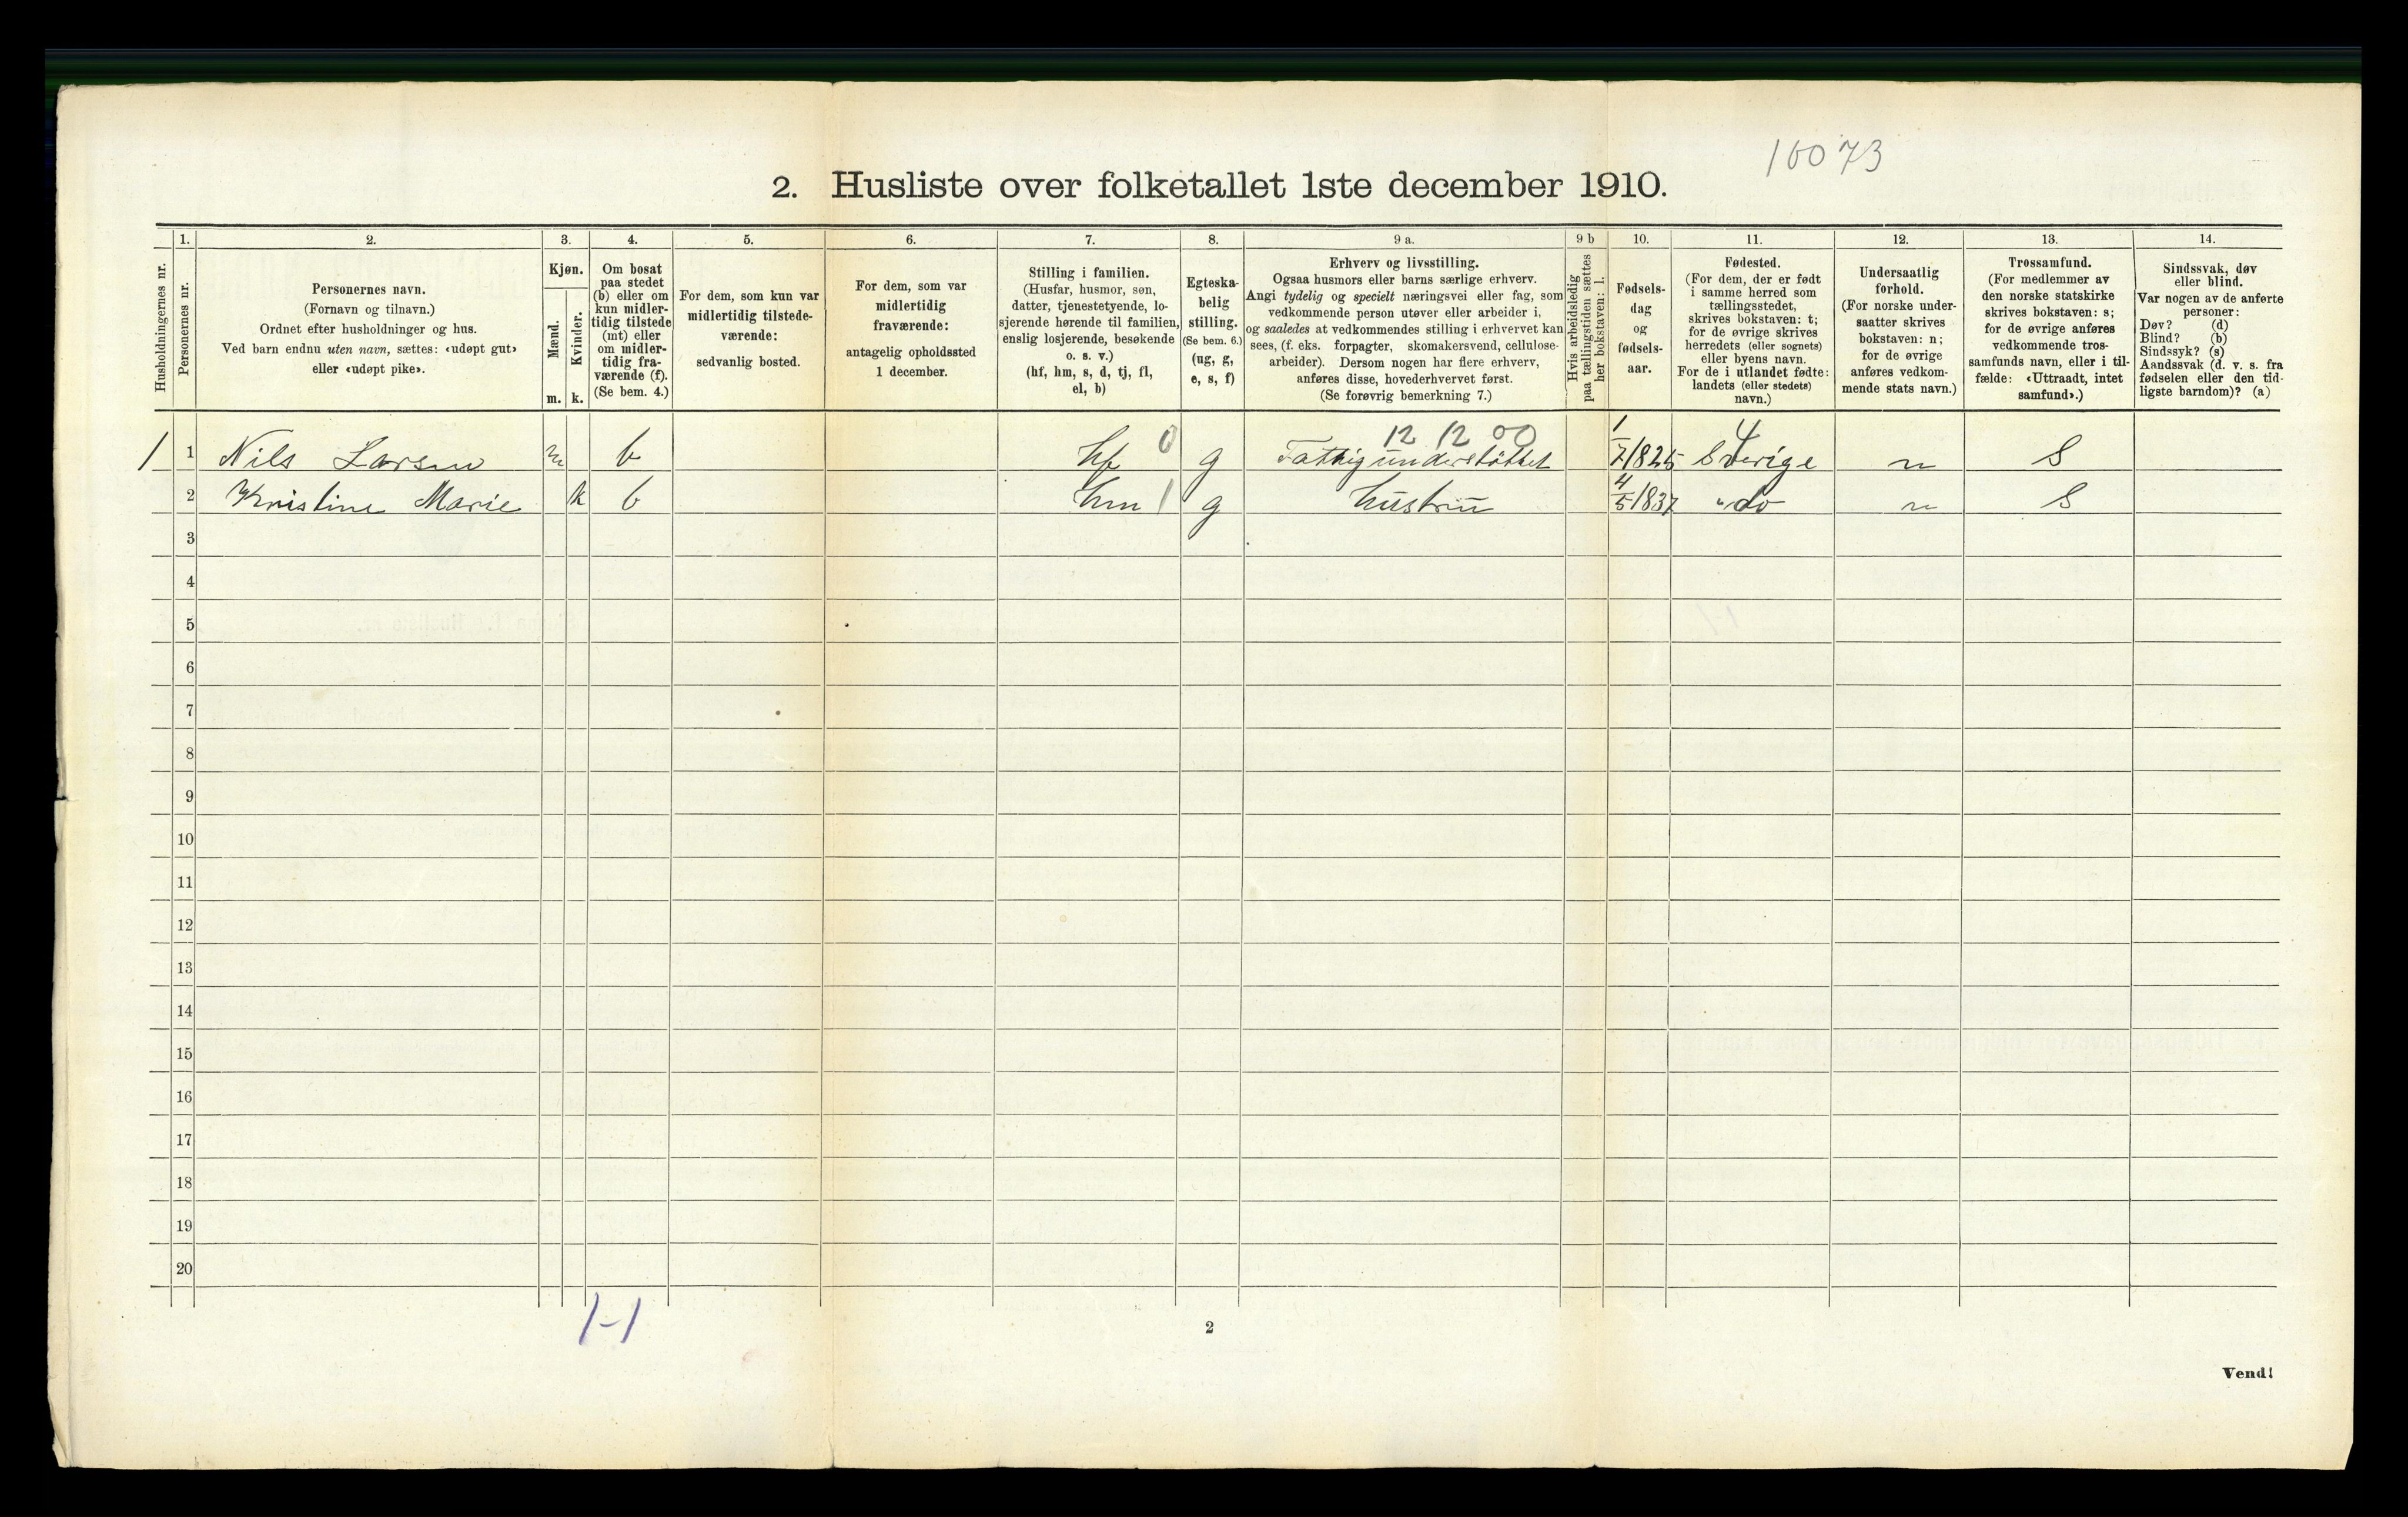 10073
2. Husliste over folketallet 1ste december 1910.
Husholdningernes nr.
1.
Personernes nr.
2.
Personernes navn.
(Fornavn og tilnavn.)
Ordnet efter husholdninger og hus.
Ved barn endnu uten navn, sættes: «udøpt gut»
eller «udøpt pike».
3.
Kjøn.
Mænd.
Kvinder.
m. k.
4.
Om bosat
paa stedet
(b) eller om
kun midler-
tidig tilstede
(mt) eller
om midler-
tidig fra-
værende (f).
(Se bem. 4.)
5.
For dem, som kun var
midlertidig tilstede-
værende:
sedvanlig bosted.
6.
For dem, som var
midlertidig
fraværende:
antagelig opholdssted
1 december.
7.
Stilling i familien.
(Husfar, husmor, søn,
datter, tjenestetyende, lo-
sjerende hørende til familien,
enslig losjerende, besøkende
o. s. v.)
(hf, hm, s, d, tj, fl,
el, b)
8.
Egteska-
belig
stilling.
(Se bem. 6.)
(ug, g,
e, s, f)
9 a.
Erhverv og livsstilling.
Ogsaa husmors eller barns særlige erhverv.
Angi tydelig og specielt næringsvei eller fag, som
vedkommende person utøver eller arbeider i,
og saaledes at vedkommendes stilling i erhvervet kan
sees, (f. eks. forpagter, skomakersvend, cellulose-
arbeider). Dersom nogen har flere erhverv,
anføres disse, hovederhvervet først.
(Se forøvrig bemerkning 7.)
9 b
Hvis arbeidsledig
paa tællingstiden sættes
her bokstaven: l.
10.
Fødsels-
dag
og
fødsels-
aar.
11.
Fødested.
(For dem, der er født
i samme herred som
tællingsstedet,
skrives bokstaven: t;
for de øvrige skrives
herredets (eller sognets)
eller byens navn.
For de i utlandet fødte:
landets (eller stedets)
navn.)
12.
Undersaatlig
forhold.
(For norske under-
saatter skrives
bokstaven: n;
for de øvrige
anføres vedkom-
mende stats navn.)
13.
Trossamfund.
(For medlemmer av
den norske statskirke
skrives bokstaven: s;
for de øvrige anføres
vedkommende tros-
samfunds navn, eller i til-
fælde: «Uttraadt, intet
samfund».)
14.
Sindssvak, døv
eller blind.
Var nogen av de anførte
personer:
Døv? (d)
Blind? (b)
Sindssyk? (s)
Aandssvak (d. v. s. fra
fødselen eller den tid-
ligste barndom)? (a)
12 12 00 4
1 1 Nils Larsen m b hf 0 g Fattigunderstøttet 1/7 1825 Sverige n S
2 Kristine Marie k b hm 1 g hustru 4/5 1837 " do n S
3
4
5
6
7
8
9
10
11
12
13
14
15
16
17
18
19
20
1-1
2
Vend!